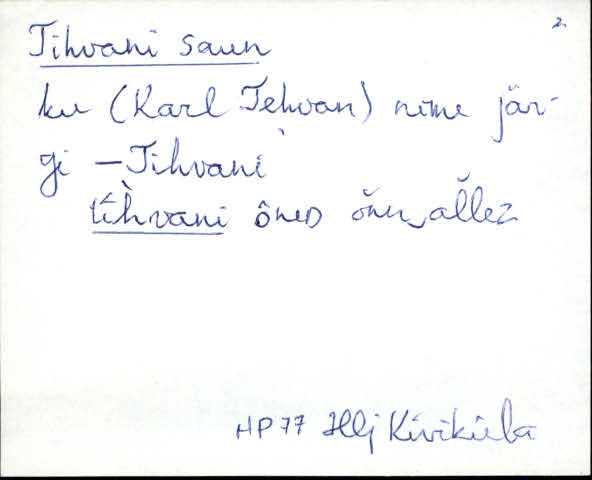 2.
Tihvani saun
ku (Karl Tehvan) nime jär-
gi – Tihvani
tíh̀vani ôneD ŏnu‿al̆lez
HP77 Hlj Kiviküla